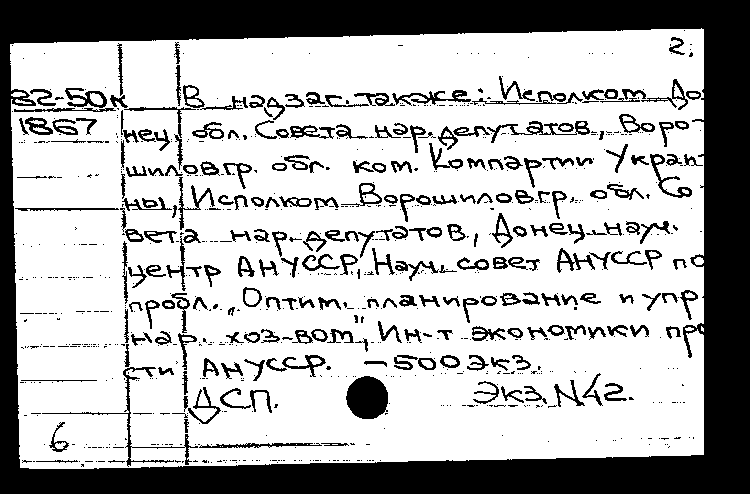 2.
82-50к В надзаг. также: Исполком До-
1867 нец. обл. Совета нар. депутатов, Воро-
шиловгр. обл. ком. Компартии Украи-
ны, Исполком Ворошиловгр. обл. Со-
вета нар. депутатов, Донец. науч.
центр АН УССР, Науч. совет АН УССР по
пробл. „Оптим. планирование и упр.
нар. хоз-вом", Ин-т экономики про
сти АН УССР. – 500 экз.
ДСП. Экз. N42.
6